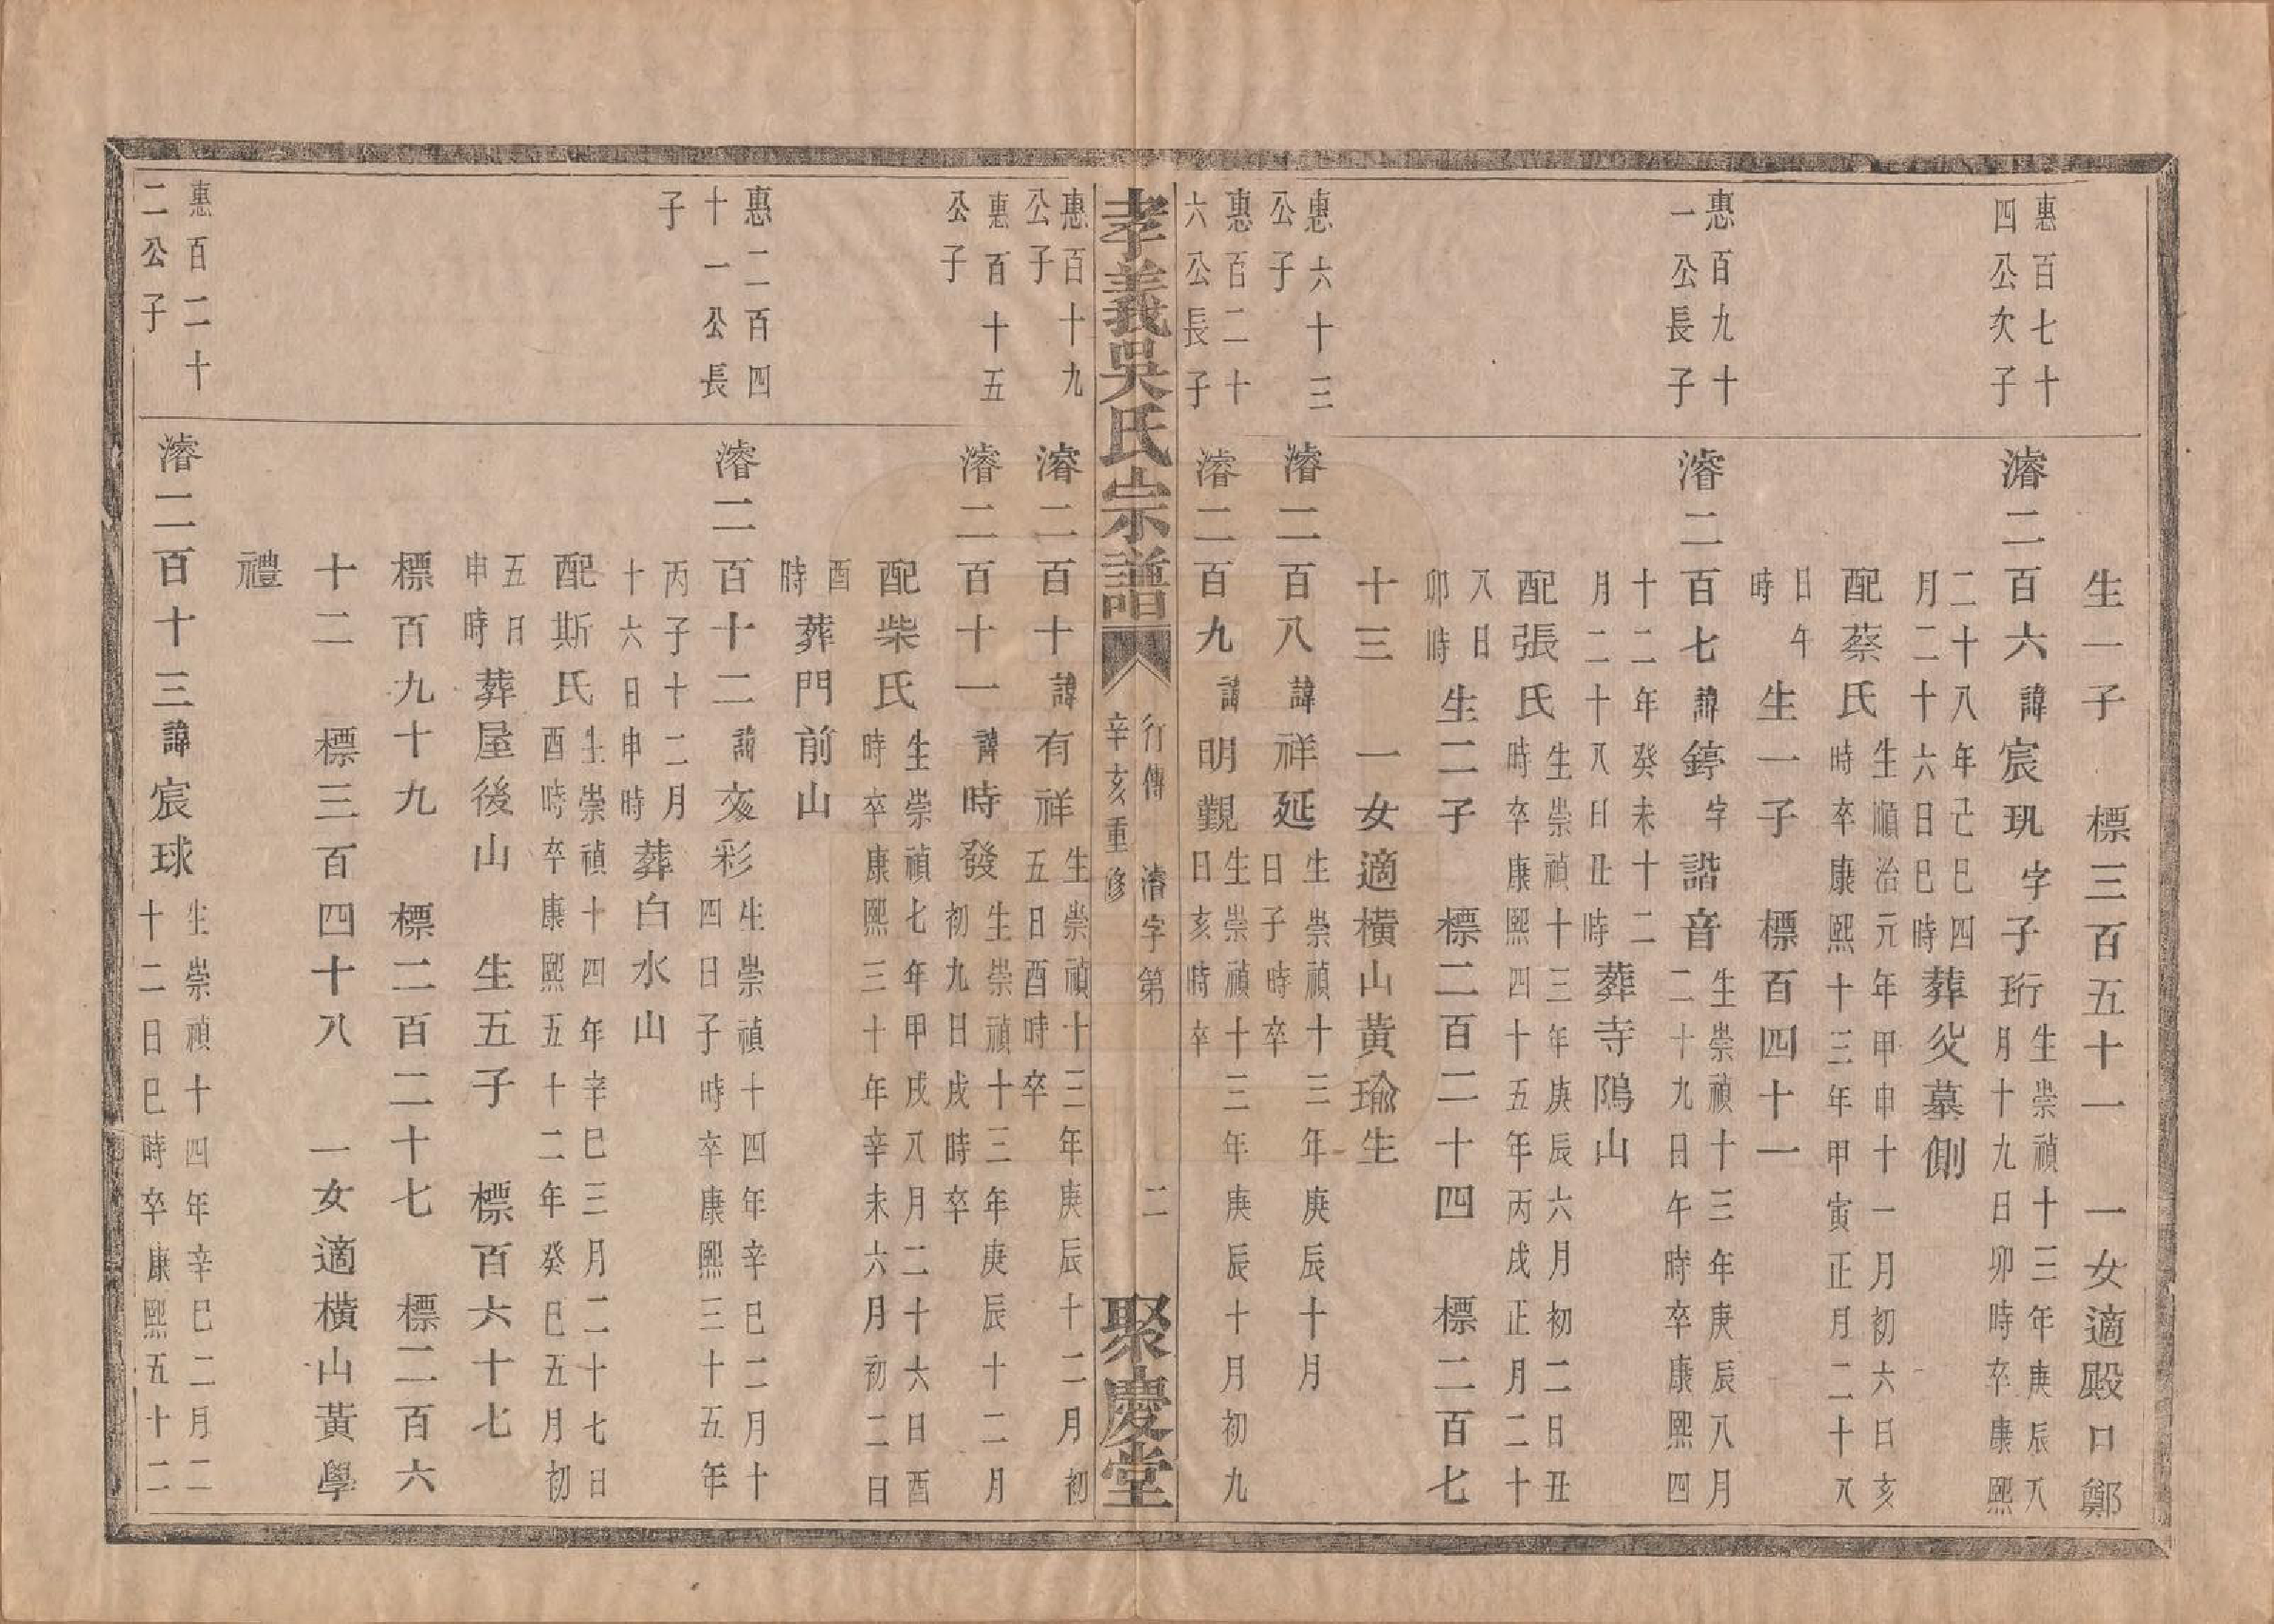 生一子　標三百五十一　一女適殿口鄭
惠百七十
四公次子
濬二百六諱宸玑字子珩
生崇禎十三年庚辰八
月十九日卯時卒康熙
二十八年己巳四
月二十六日巳時
葬父墓側
配蔡氏
生順治元年甲申十一月初六日亥
時卒康熙十三年甲寅正月二十八
日午
時
生一子　標百四十一
惠百九十
一公長子
濬二百七諱錞字諧音
生崇禎十三年庚辰八月
二十九日午時卒康熙四
十二年癸未十二
月二十八日丑時
葬寺隖山
配張氏
生崇禎十三年庚辰六月初二日丑
時卒康熙四十五年丙戌正月二十
八日
卯時
生二子　標二百二十四　標二百七
十三　一女適橫山黃瑜生
惠六十三
公子
濬二百八諱祥延
生崇禎十三年庚辰十月
日子時卒
惠百二十
六公長子
濬二百九諱明觀
生崇禎十三年庚辰十月初九
日亥時卒
孝義吳氏宗譜
行傳　濬字第　二
辛亥重修
聚慶堂
惠百十九
公子
濬二百十諱有祥
生崇禎十三年庚辰十二月初
五日酉時卒
惠百十五
公子
濬二百十一諱時發
生崇禎十三年庚辰十二月
初九日戌時卒
配柴氏
生崇禎七年甲戌八月二十六日酉
時卒康熙三十年辛未六月初二日
酉
時
葬門前山
惠二百四
十一公長
子
濬二百十二諱文彩
生崇禎十四年辛巳二月十
四日子時卒康熙三十五年
丙子十二月
十六日申時
葬白水山
配斯氏
生崇禎十四年辛巳三月二十七日
酉時卒康熙五十二年癸巳五月初
五日
申時
葬屋後山　生五子　標百六十七
標百九十九　標二百二十七　標二百六
十二　標三百四十八　一女適橫山黃學
禮
惠百二十
二公子
濬二百十三諱宸球
生崇禎十四年辛巳二月二
十二日巳時卒康熙五十二